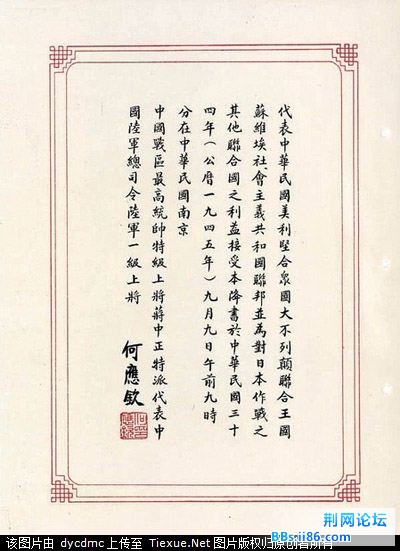 代表中華民國美利堅合眾國大不列顛聯合王國
蘇維埃社會主義共和國聯邦並為對日本作戰之
其他聯合國之利益接受本降書於中華民國三十
四年（公曆一九四五年）九月九日午前九時
分在中華民國南京
中國戰區最高統帥特級上將蔣中正特派代表中
國陸軍總司令陸軍一級上將
何應欽
该图片由 dycdmc 上传至 Tiexue.Net 图片版权归原创者所有
荆网论坛
BBs.ii86.com